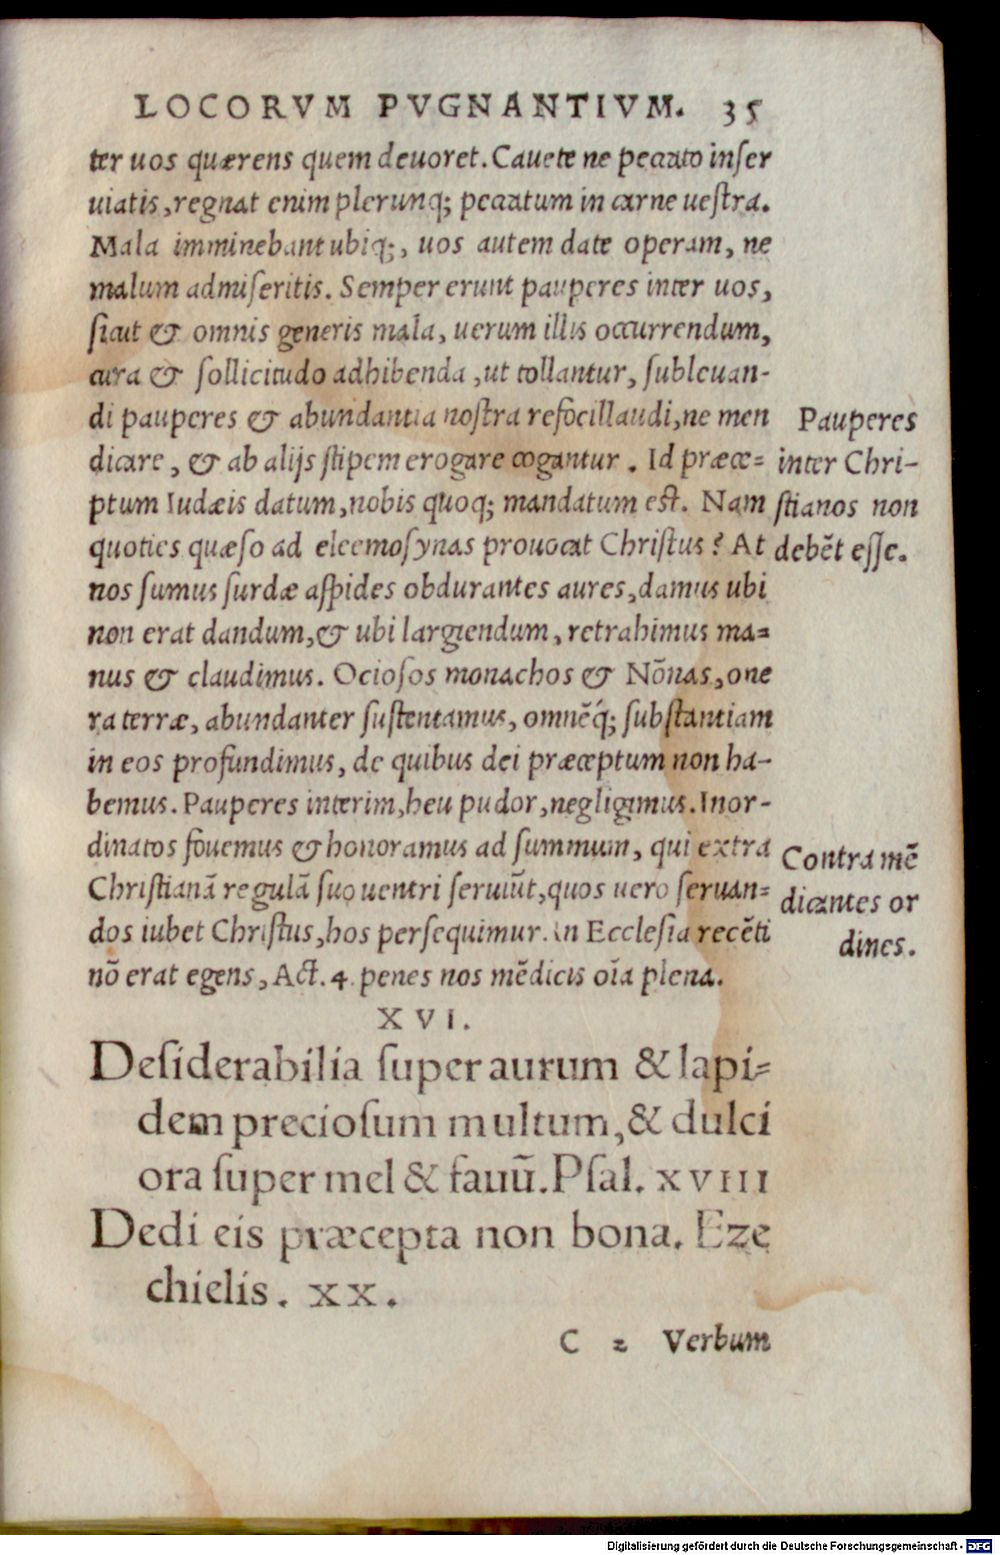 LOCORVM PVGNANTIVM. 35
ter uos quærens quem deuoret. Cauete ne peccato inser
uiatis, regnat enim plerunq; peccatum in carne uestra.
Mala imminebant ubiq;, uos autem date operam, ne
malum admiseritis. Semper erunt pauperes inter uos,
sicut & omnis generis mala, uerum illis occurrendum,
cura & sollicitudo adhibenda, ut tollantur, subleuan-
di pauperes & abundantia nostra refocillaudi, ne men
dicare, & ab alijs stipem erogare cogantur. Id præce=
ptum Iudæis datum, nobis quoq; mandatum est. Nam
quoties quæso ad eleemosynas prouocat Christus? At
nos sumus surdæ aspides obdurantes aures, damus ubi
non erat dandum, & ubi largiendum, retrahimus ma=
nus & claudimus. Ociosos monachos & Nõnas, one
ra terræ, abundanter sustentamus, omnẽq́; substantiam
in eos profundimus, de quibus dei præceptum non ha-
bemus. Pauperes interim, heu pudor, negligimus. Inor-
dinatos fouemus & honoramus ad summum, qui extra
Christianã regulã suo uentri seruiũt, quos uero seruan=
dos iubet Christus, hos persequimur. In Ecclesia recẽti
nõ erat egens, Act. 4. penes nos mẽdicis oĩa plena.
Pauperes
inter Chri-
stianos non
debẽt esse.
Contra mẽ
dicantes or
dines.
XVI.
Desiderabilia super aurum & lapi=
dem preciosum multum, & dulci
ora super mel & fauũ. Psal. XVIII
Dedi eis præcepta non bona. Eze
chielis. XX.
C 2 Verbum
Digitalisierung gefördert durch die Deutsche Forschungsgemeinschaft - DFG